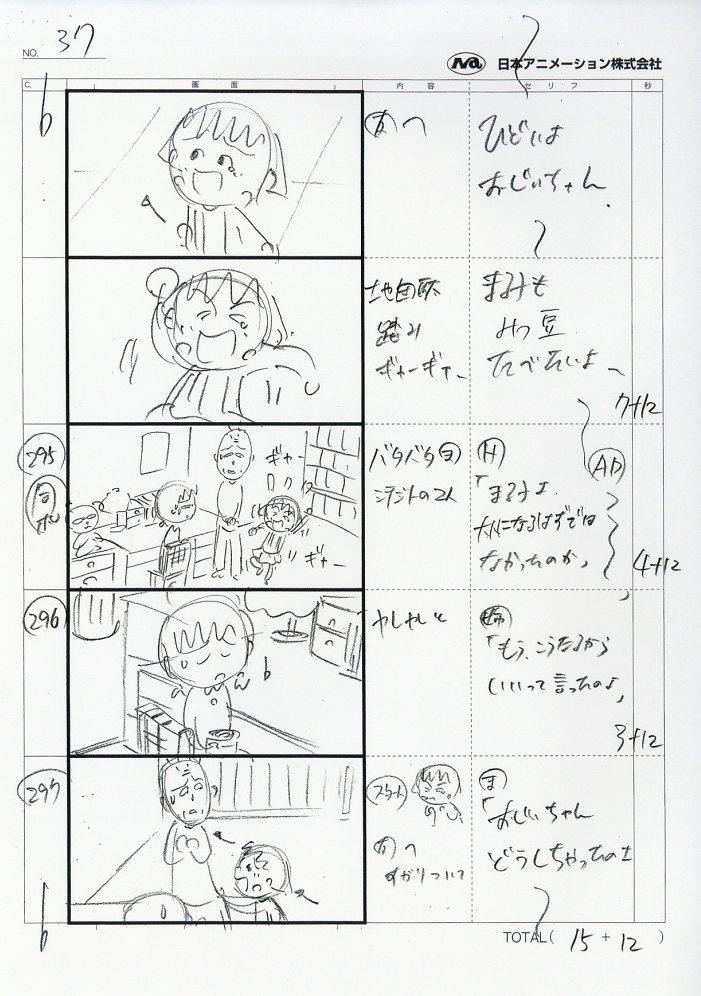 NO. 37
日本アニメーション株式会社
C. 画面 内容 セリフ 秒
ひどいよ
おじいちゃん
地団駄
踏み
ギャーギャー
まる子も
みつ豆
たべたいよ～
7+12
295
ギャー
ギャー
バタバタ
H
「まる子よ
大人になるはずでは
なかったのか」
4+12
296
やれやれと
姉
「もう、こうなるから
いいって言ったのよ」
3+12
297
スタート
すがりついて
ま
「おじいちゃん
どうしちゃったのよ
TOTAL( 15 + 12 )